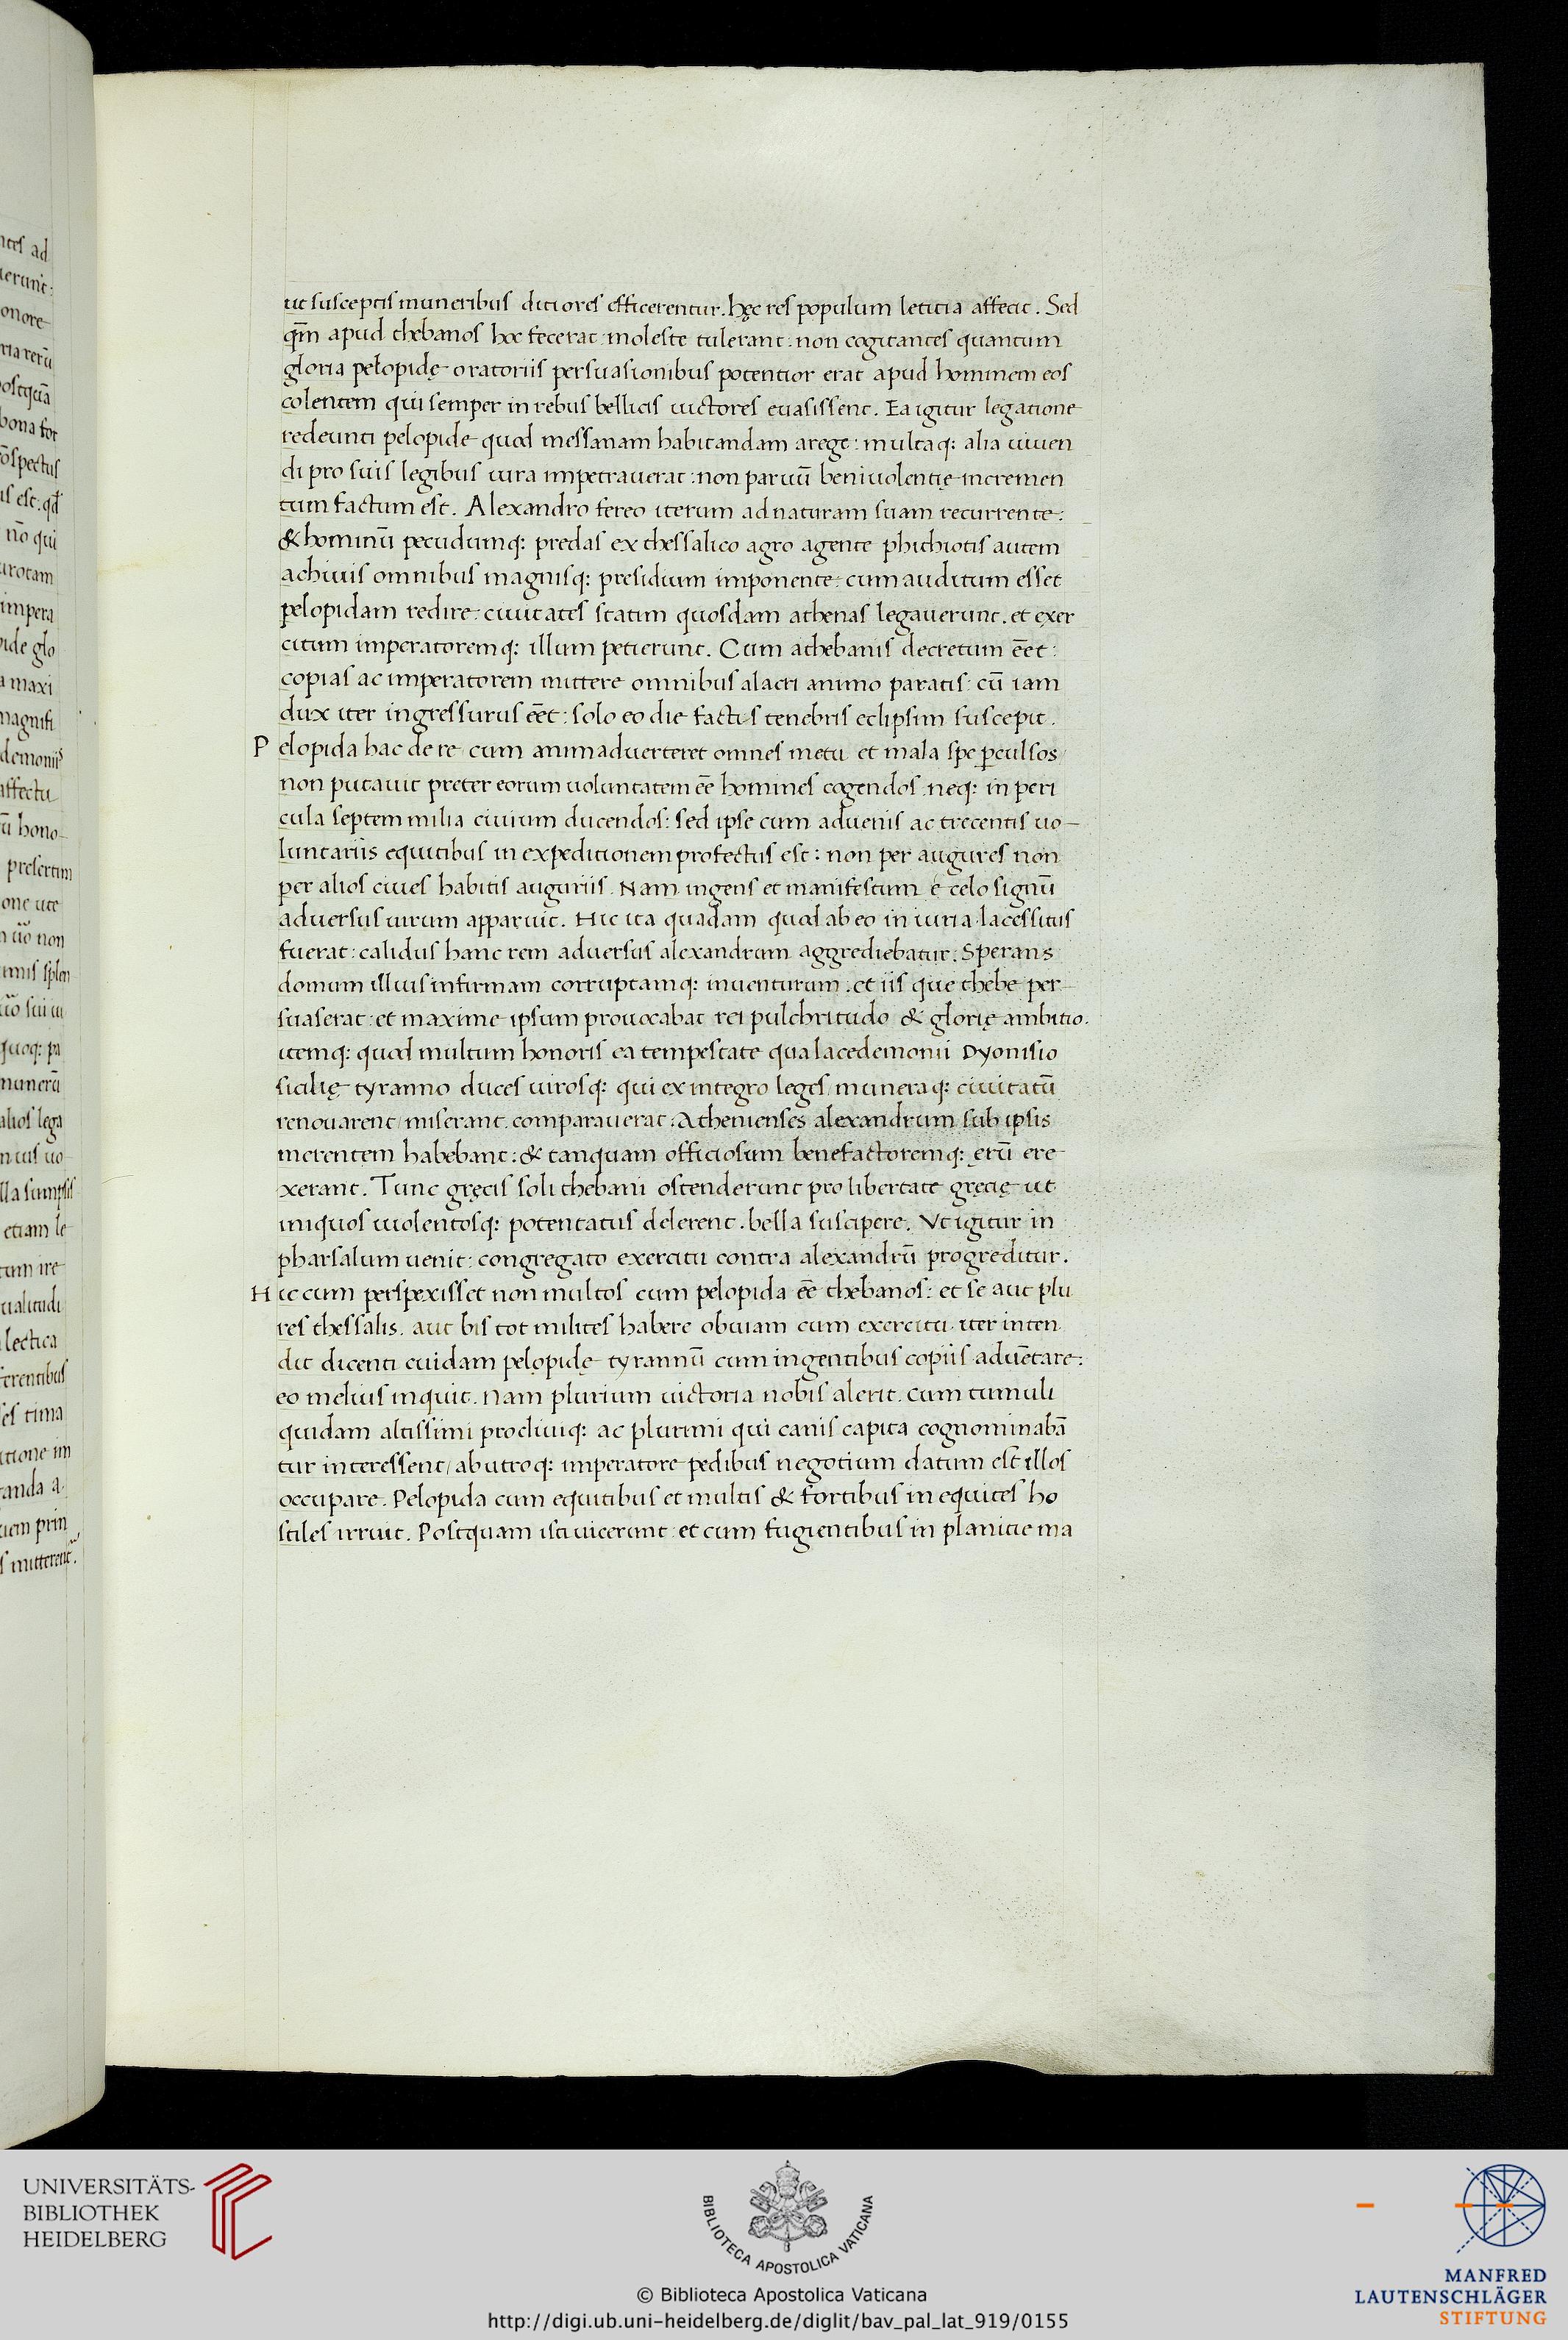 ut susceptis muneribus ditiores efficerentur. hęc res populum leticia affecit. Sed
qm̄ apud thebanos hoc fecerat: moleste tulerant: non cogitantes quantum
gloria pelopidę oratoriis persuasionibus potentior erat apud hominem eos
colentem qui semper in rebus bellicis uictores euasissent. Ea igitur legatione
redeunti pelopide quod messanam habitandam a rege: multaq: alia uiuen
di pro suis legibus iura impetrauerat: non paruū beniuolentię incremen
tum factum est. Alexandro fereo iterum ad naturam suam recurrente:
& hominū pecudumq: predas ex thessalico agro agente phthiotis autem
achiuis omnibus magnisq: presidium imponente: cum auditum esset
pelopidam redire: ciuitates statim quosdam athenas legauerunt. et exer
citum imperatoremq: illum petierunt. Cum a thebanis decretum eēt:
copias ac imperatorem mittere omnibus alacri animo paratis: cū iam
dux iter ingressurus eēt: solo eo die factis tenebris eclipsim suscepit.
Pelopida hac de re cum animaduerteret omnes metu et mala spe ꝑculsos
non putauit preter eorum uoluntatem eē homines cogendos neq: in peri
cula septem milia ciuium ducendos: sed ipse cum aduenis ac trecentis uo-
luntariis equitibus in expeditionem profectus est: non per augures non
per alios ciues habitis auguriis. Nam ingens et manifestum e celo signū
aduersus uirum apparuit. Hic ita quadam quod ab eo iniuria lacessitus
fuerat: calidus hanc rem aduersus alexandrum aggrediebatur. Sperans
domum illius infirmam corruptamq: inuenturum. et iis que thebe per-
suaserat: et maxime ipsum prouocabat rei pulchritudo & glorię ambitio.
itemq: quod multum honoris ea tempestate qua lacedemonii Dyonisio
sicilię tyranno duces uirosq: qui ex integro leges muneraq: ciuitatū
renouarent/ miserant. comparauerat. Athenienses alexandrum sub ipsis
merentem habebant: & tanquam officiosum benefactoremq: ęrū ere-
xerant. Tunc gręcis soli thebani ostenderunt pro libertate gręcię ut
iniquos uiolentosq: potentatus delerent. bella suscipere. Vt igitur in
pharsalum uenit: congregato exercitu contra alexandrū progreditur.
Hic cum perspexisset non multos cum pelopida eē thebanos: et se aut plu
res thessalis. aut bis tot milites habere obuiam cum exercitu iter inten
dit dicenti cuidam pelopidę tyrannū cum ingentibus copiis aduētare:
eo melius inquit. Nam plurium uictoria nobis alerit. cum tumuli
quidam altissimi procliuiq: ac plurimi qui canis capita cognominabā
tur interessent/ ab utroq: imperatore pedibus negotium datum est illos
occupare. Pelopida cum equitibus et multis & fortibus in equites ho
stiles irruit. Postquam isti uicerunt: et cum fugientibus in planicie ma
UNIVERSITÄTS-
BIBLIOTHEK
HEIDELBERG
BIBLIOTECA APOSTOLICA VATICANA
© Biblioteca Apostolica Vaticana
http://digi.ub.uni-heidelberg.de/diglit/bav_pal_lat_919/0155
MANFRED
LAUTENSCHLÄGER
STIFTUNG